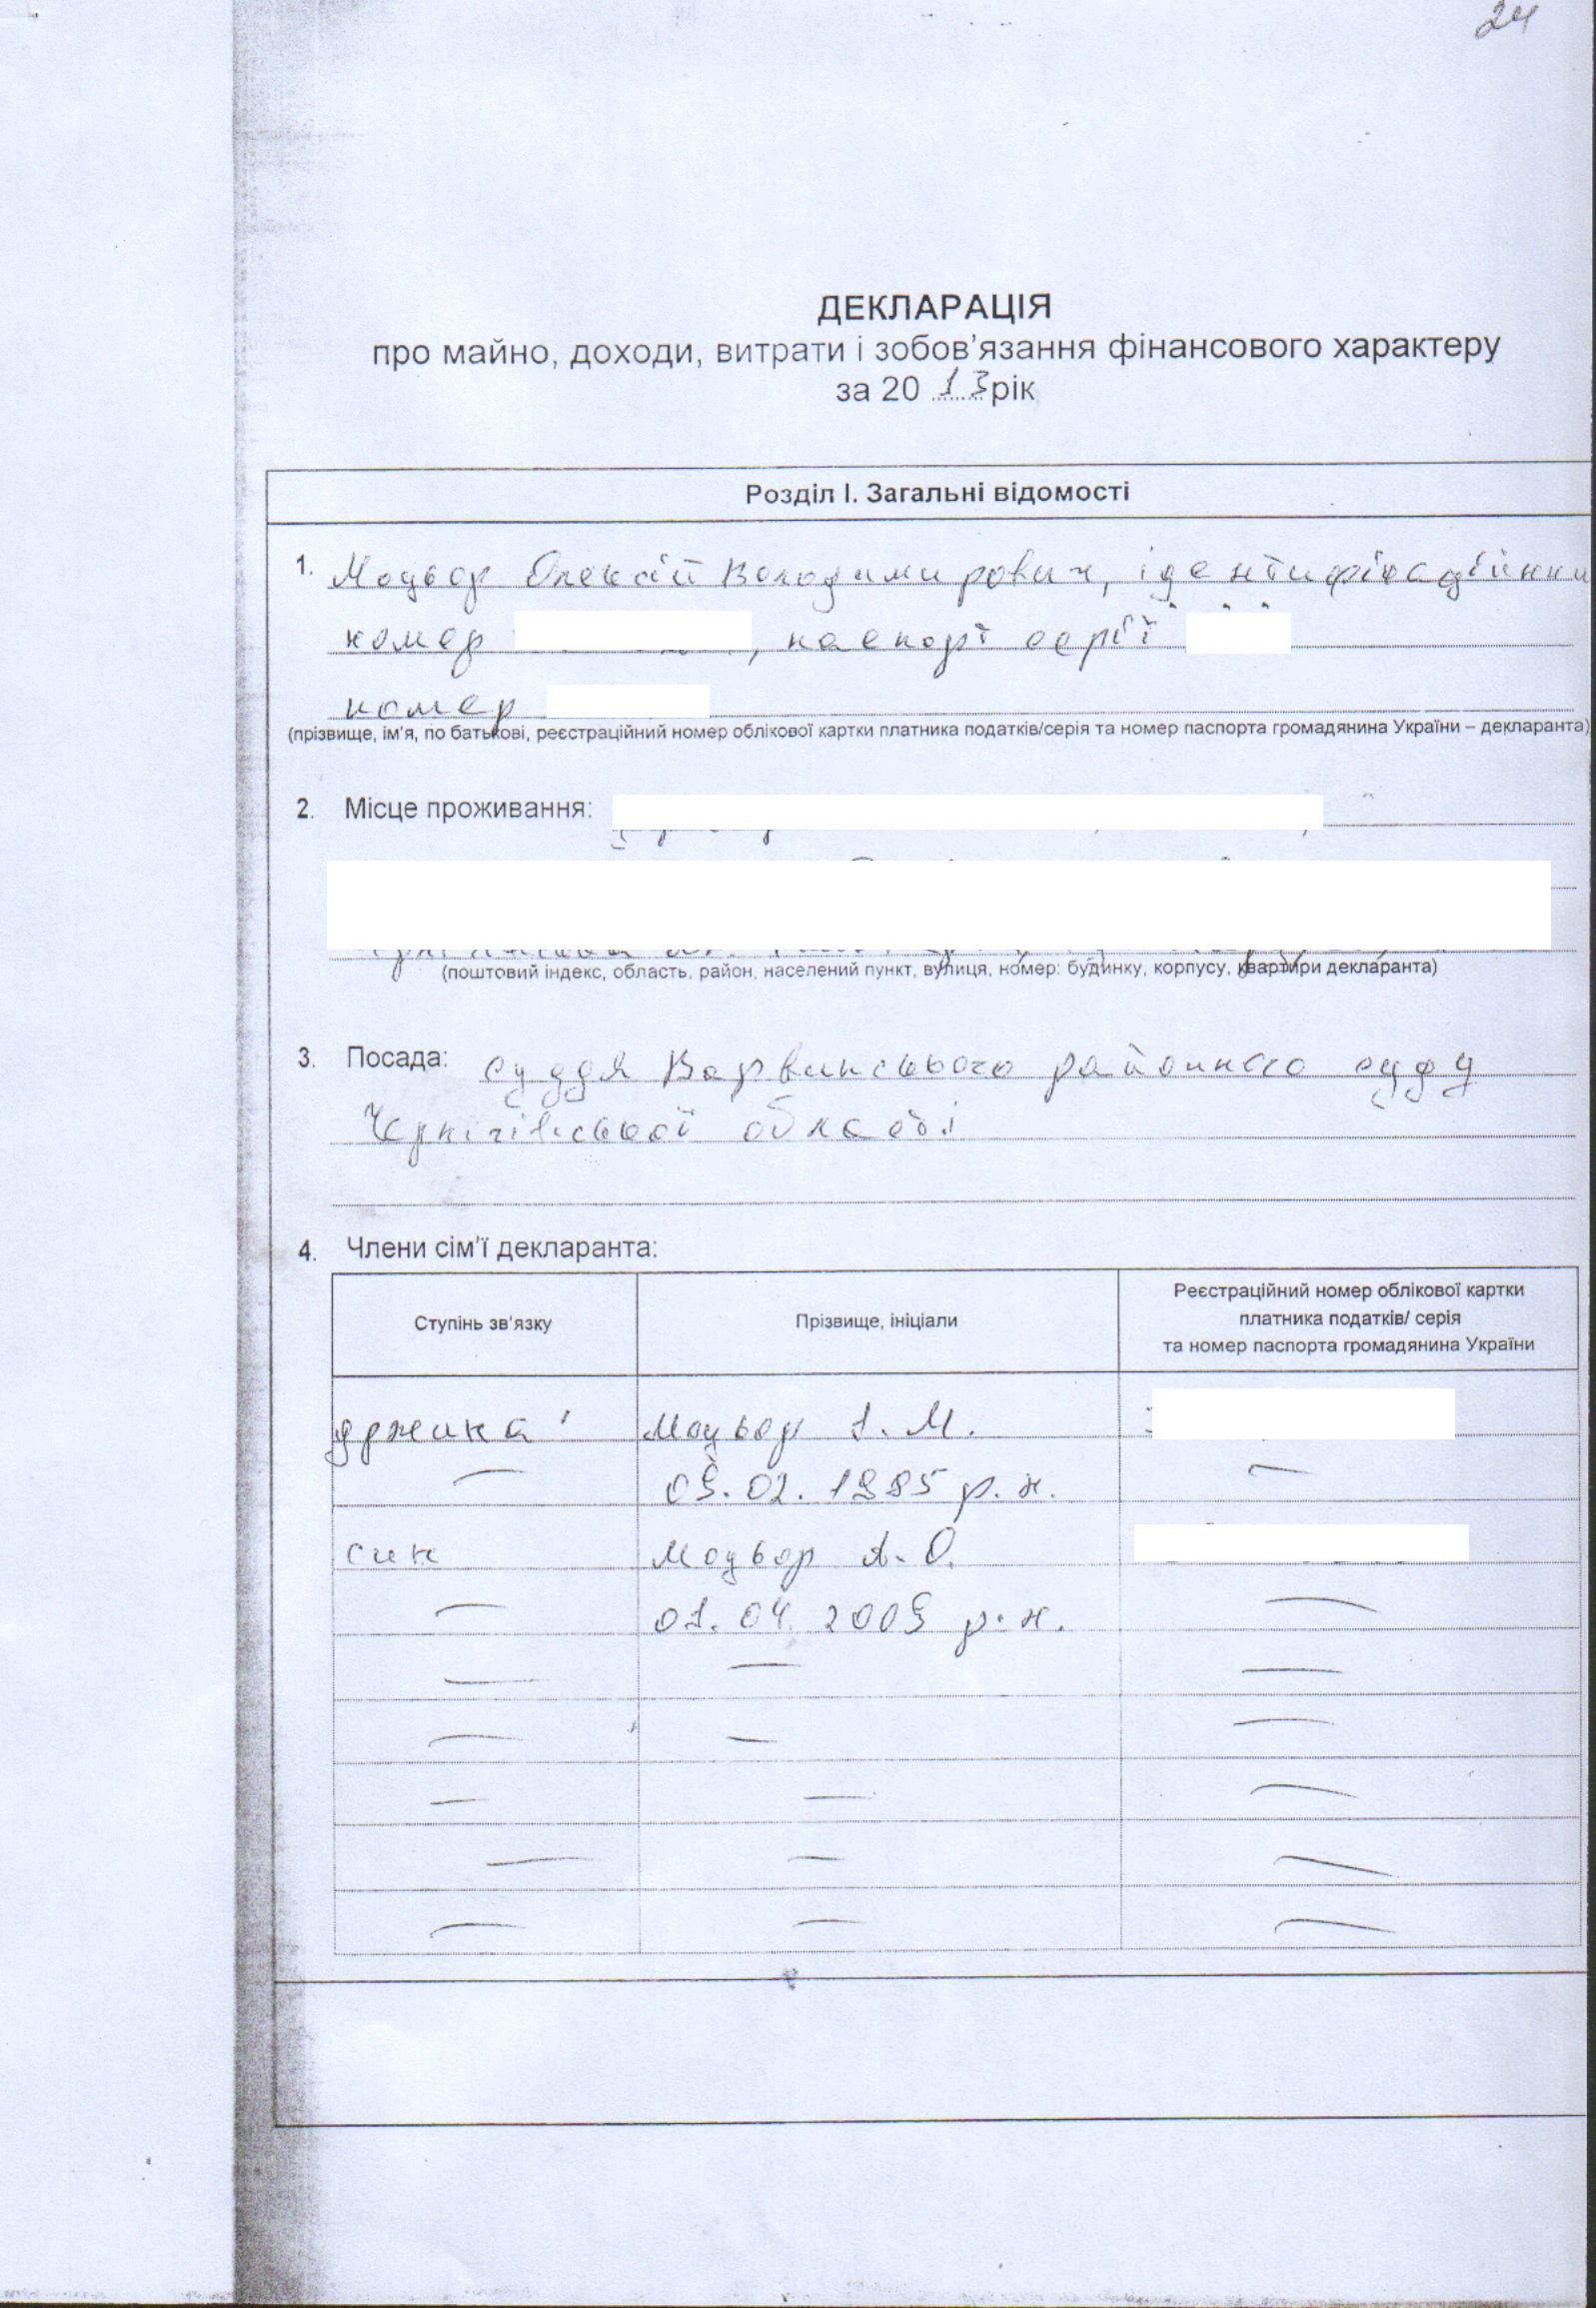 24
ДЕКЛАРАЦІЯ
про майно, доходи, витрати і зобов'язання фінансового характеру
за 2013 рік
Розділ I. Загальні відомості
1. Олексій Володимирович, ідентифікаційний
номер , паспорт серії
номер
(прізвище, ім'я, по батькові, реєстраційний номер облікової картки платника податків/серія та номер паспорта громадянина України – декларанта)
2. Місце проживання:
(поштовий індекс, область, район, населений пункт, вулиця, номер: будинку, корпусу, квартири декларанта)
3. Посада: суддя Варвинського районного суду
Чернігівської області
4. Члени сім'ї декларанта:
Ступінь зв'язку Прізвище, ініціали Реєстраційний номер облікової картки
платника податків/ серія
та номер паспорта громадянина України
дружина І. М.
— 09.02.1985 р.н. —
син А. О.
— 01.04.2009 р.н. —
— — —
— — —
— — —
— — —
— — —